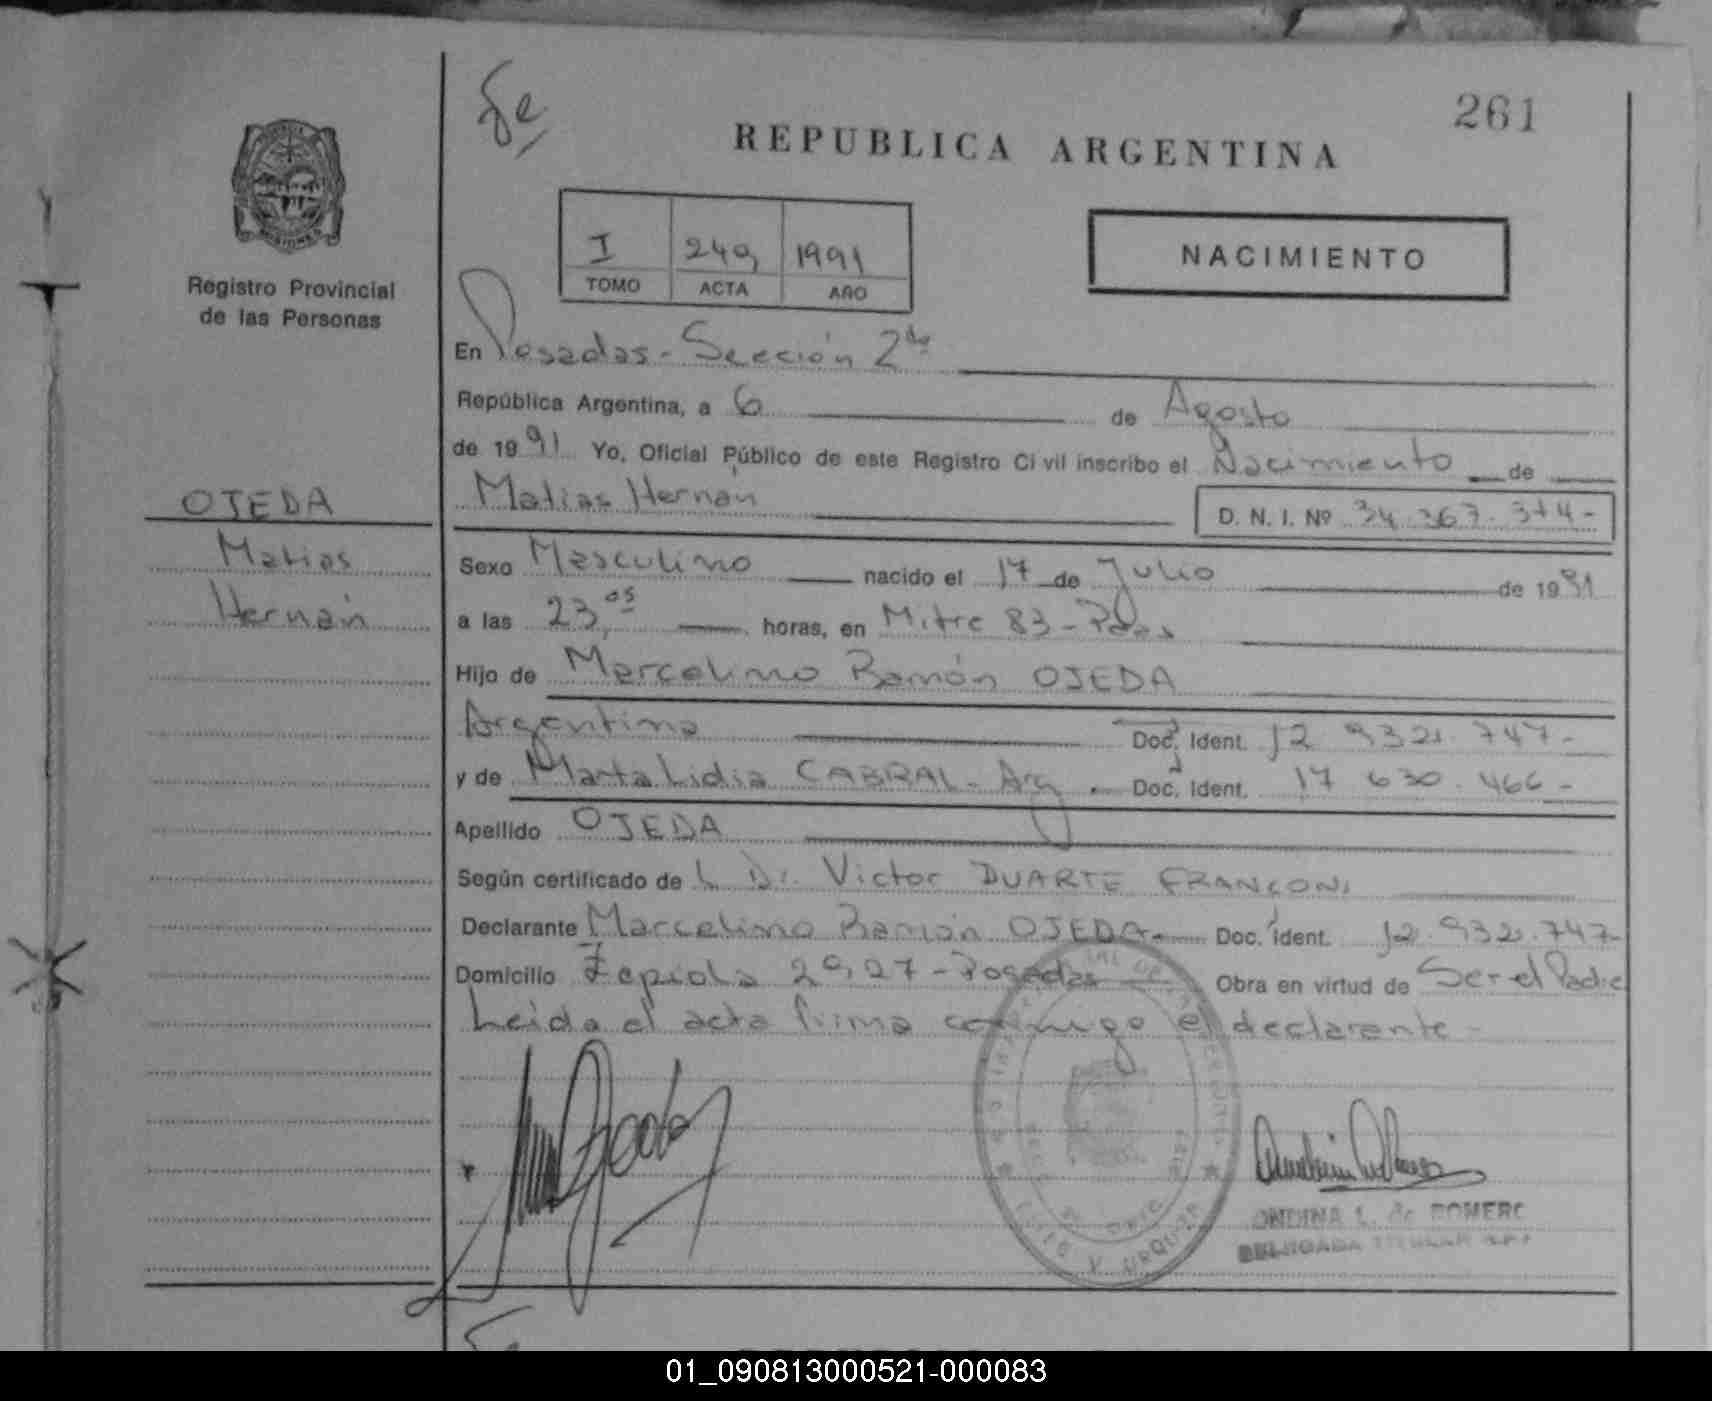 261
REPUBLICA ARGENTINA
MISIONES
Registro Provincial
de las Personas
I 249 1991
TOMO ACTA AÑO
NACIMIENTO
En Posadas - Sección 2da
República Argentina, a 6 de Agosto
de 1991 Yo, Oficial Público de este Registro Civil inscribo el Nacimiento de
Matias Hernán D. N. I. Nº 34.367.374-
OJEDA
Matias
Hernán
Sexo Masculino nacido el 17 de Julio de 1991
a las 23,05 horas, en Mitre 83 - Pdas
Hijo de Marcelino Ramón OJEDA
Argentino Doc. Ident. 12.932.747-
y de Marta Lidia CABRAL - Arg. Doc. Ident. 17.630.466-
Apellido OJEDA
Según certificado de L Dr. Victor DUARTE FRANÇONI
Declarante Marcelino Ramón OJEDA - Doc. Ident. 12.932.747-
Domicilio Zapiola 2927 - Posadas Obra en virtud de Ser el Padre
Leida el acta firma conmigo el declarante -
ONDINA L. de ROMERO
DELEGADA TITULAR
01_090813000521-000083